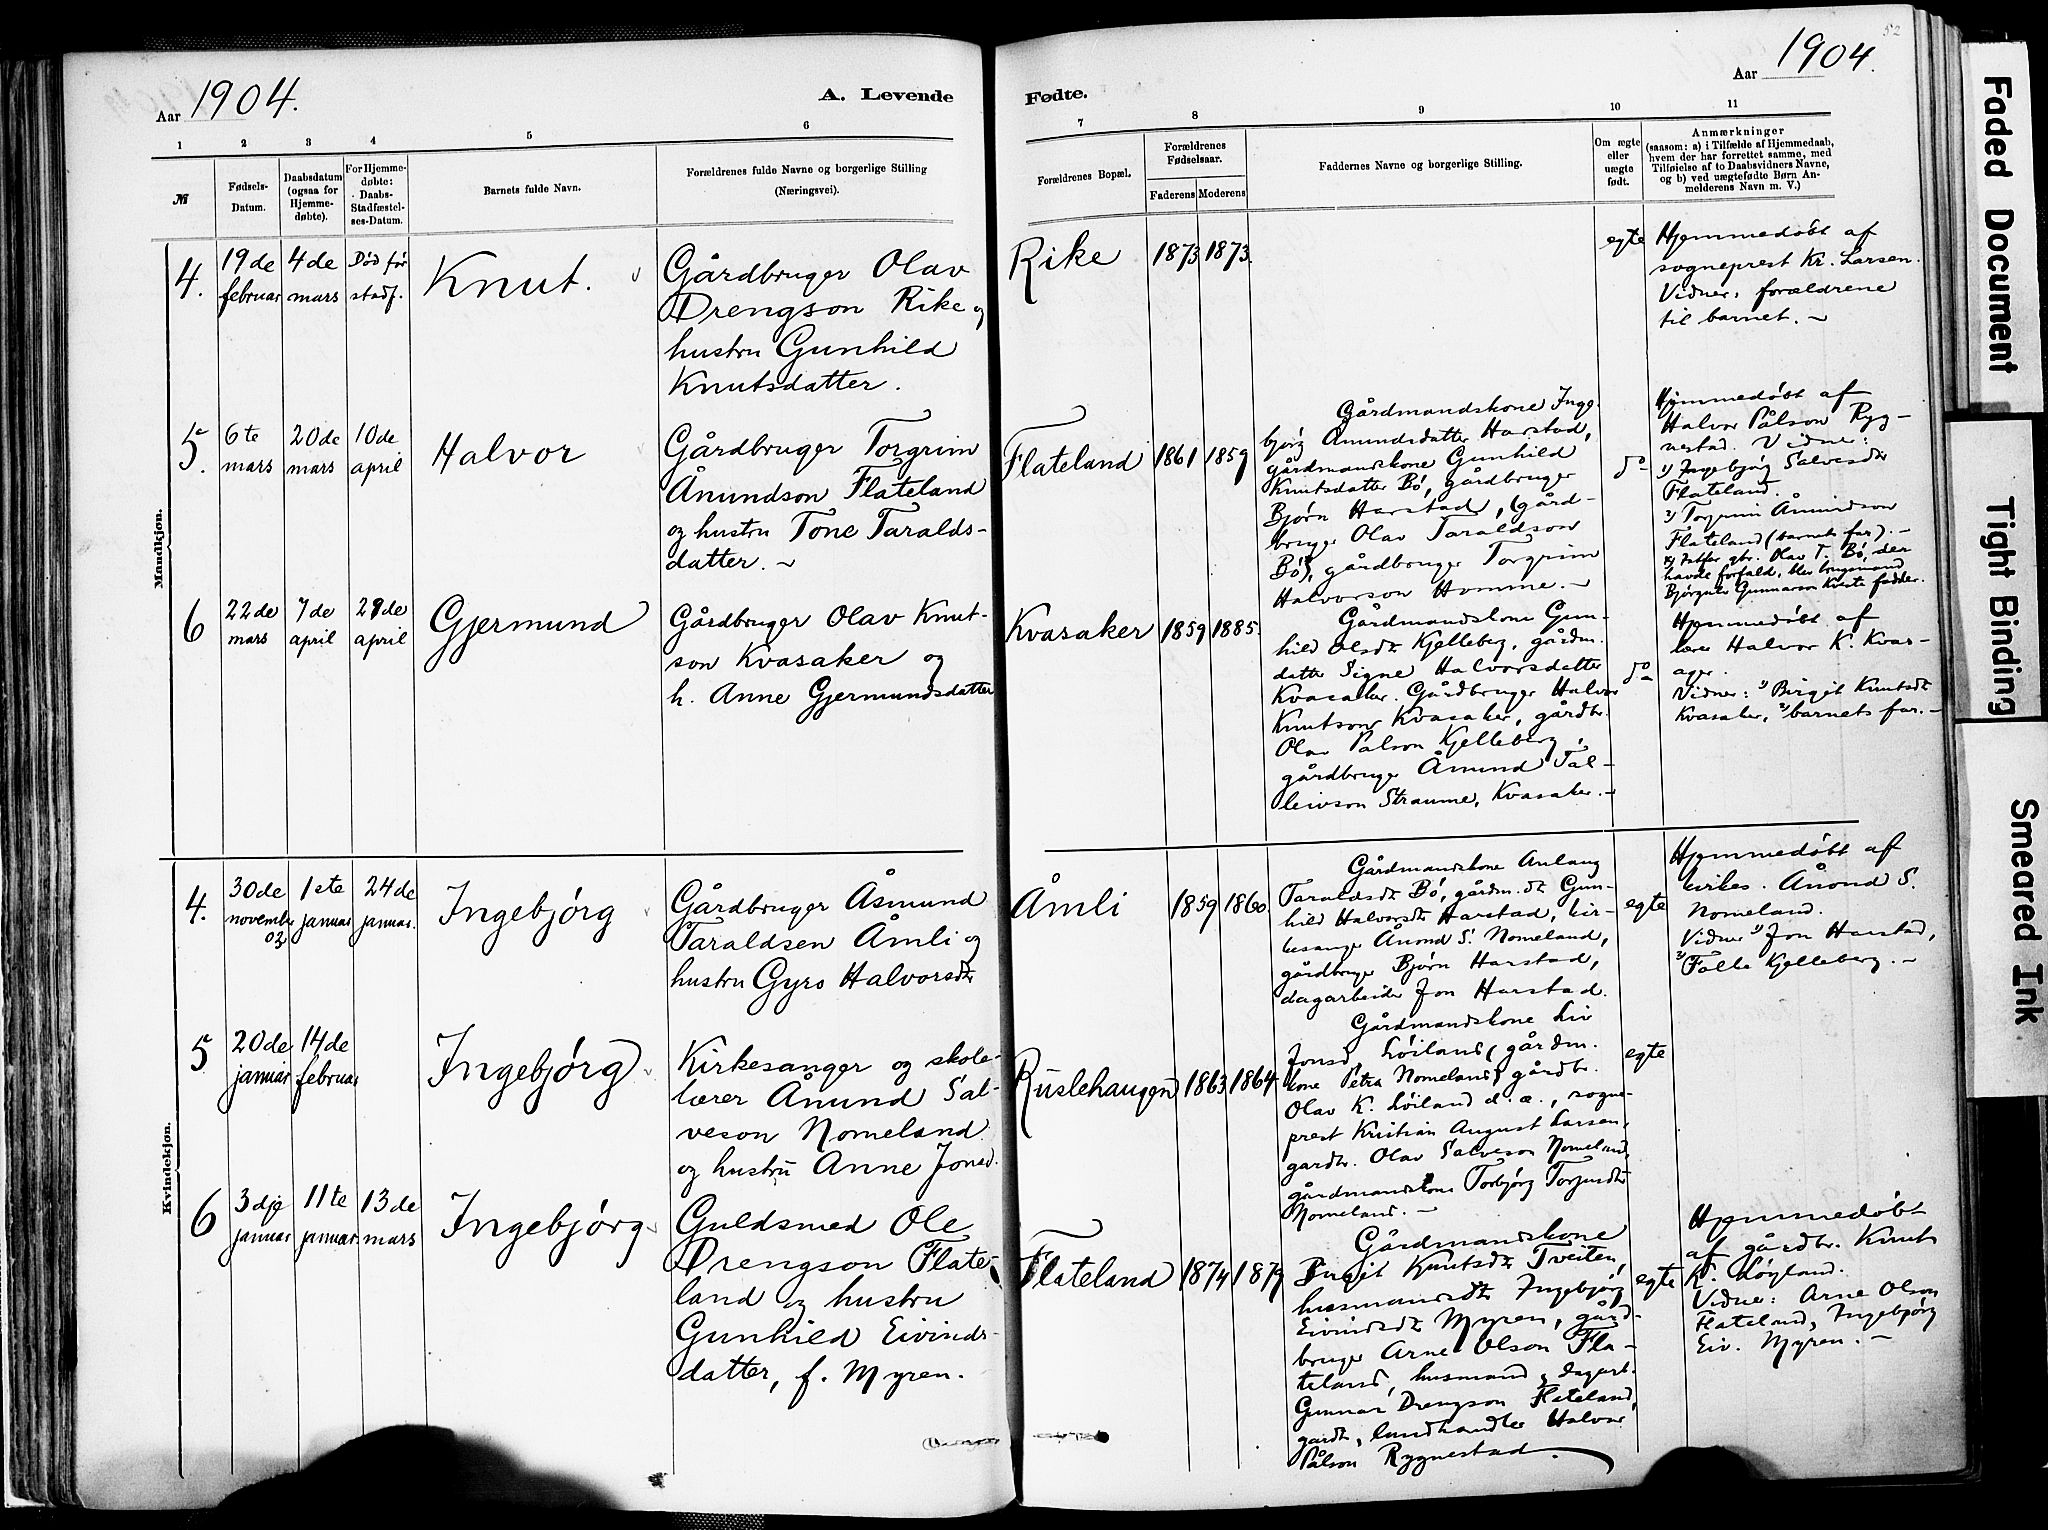 Aar 1904.
A. Levende
Fødte.
Aar 1904.
52
1
2
3
4
5
6
7
8
9
10
11
№
Fødsels-
Datum.
Daabsdatum
(ogsaa for
Hjemme-
døbte).
For Hjemme-
døbte:
Daabs-
Stadfæstel-
ses-Datum.
Barnets fulde Navn.
Forældrenes fulde Navne og borgerlige Stilling
(Næringsvei).
Forældrenes Bopæl.
Forældrenes
Fødselsaar.
Faderens
Moderens
Faddernes Navne og borgerlige Stilling.
Om ægte
eller
uægte
født.
Anmærkninger
(saasom: a) i Tilfælde af Hjemmedaab,
hvem der har forrettet samme, med
Tilføielse af to Daabsvidners Navne,
og b) ved uægtefødte Børn An-
melderens Navn m. V.)
Mandkjøn.
4.
19de
februar
4de
mars
Død før
stadf.
Knut.
Gårdbruger Olav
Drengson Rike og
hustru Gunhild
Knutsdatter.
Rike
1873
1873.
egte
Hjemmedøbt af
sogneprest Kr. Larsen.
Vidner: forældrene
til barnet. ~
5.
6te
mars
20de
mars
10de
april
Halvor
Gårdbruger Torgrim
Ånundson Flateland
og hustru Tone Taralds-
datter. ~
Flateland
1861
1859
Gårdmandskone Inge-
bjørg Åmundsdatter Harstad,
gårdmandskone Gunhild
Knutsdatter Bø, gårdbruger
Bjørn Harstad, (gård-
bruger Olav Taraldson
Bø), gårdbruger Torgrim
Halvorson Homme. ~
do
Hjemmedøbt af
Halvor Pålson Ryg-
nestad. Vidne:
1) Ingebjørg Salvesdtr
Flateland.
2) Torgrim Ånundson
Flateland (barnets far). -
x) Istfor gbr. Olav T. Bø, der
havde forfald, blev brugsmand
Bjørgulv Gunnarson Kveste fadder.
6
22de
mars
7de
april
29de
april
Gjermund
Gårdbruger Olav Knut-
son Kvasaker og
h. Anne Gjermundsdatter
Kvasaker
1859
1885.
Gårdmandskone Gun-
hild Olsdtr Kjelleberg, gårdm.
datter Signe Halvorsdatter
Kvasaker. Gårdbruger Halvor
Knutson Kvasaker, gårdbr.
Olav Pålson Kjelleberg,
gårdbruger Åmund Tal-
leivson Straume, Kvasaker. ~
do
Hjemmedøbt af
lærer Halvor K. Kvas-
ager.
Vidner: 1) Birgit Knutsdtr
Kvasaker, 2) barnets far. -
Kvindekjøn.
4.
30de
novembr
03
1ste
januar
24de
januar.
Ingebjørg
Gårdbruger Åsmund
Taraldsen Åmli og
hustru Gyro Halvorsdtr
Åmli
1859
1860.
Gårdmandskone Anlaug
Taraldsdtr Bø, gårdm.dtr Gun-
hild Halvorsdtr Harstad, kir-
kesanger Ånond S. Nomeland,
gårdbruger Bjørn Harstad,
dagarbeider Jon Harstad.
egte
Hjemmedøbt af
kirkes. Ånond S.
Nomeland.
Vidner 1) Jon Harstad,
2) Pålle Kjelleberg. -
5
20de
januar
14de
februar
Ingebjørg
Kirkesanger og skole-
lærer Ånund Sal-
veson Nomeland
og hustru Anne Jonsd.
Ruslehaugen
1863
1864.
Gårdmandskone Liv
Jonsd. Løiland, (gårdm.
kone Petra Nomeland) gårdbr.
Olav K. Løiland d. æ., sogne-
prest Kristian August Larsen,
gardbr. Olav Salveson Nomeland,
gårdmandskone Torbjørg Torjusdtr
Nomeland. ~
egte
6
3dje
januar
11te
januar.
13de
mars
Ingebjørg
Guldsmed Ole
Drengson Flate-
land og hustru
Gunhild Eivinds-
datter, f. Myren.
Flateland
1874
1879
Gårdmandskone
Birgit Knutsdtr Tveiten,
husmandsdtr Ingebjørg
Eivindsdtr Myren, gård-
bruger Arne Olson Fla-
teland, husmand & dagarb.
Gunnar Drengson Flateland,
gardbr, landhandler Halvor
Pålson Rygnestad.
egte
Hjemmedøbt
af gårdbr. Knut
K. Løyland.
Vidne: Arne Olson
Flateland, Ingebjørg
Eiv. Myren. -
Faded Document
Tight Binding
Smeared Ink